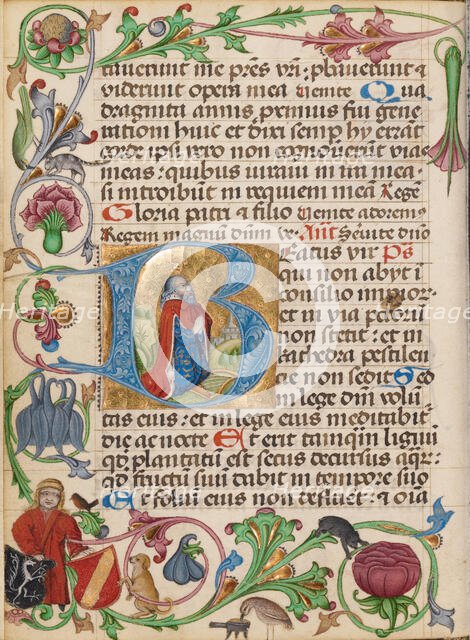 tauerunt me pr̃es vr̃i: p̱bauerunt ⁊
viderunt opera mea Venite Qua
draginta annis p̱ximus fui gene
rationi huic et dixi semp̱ hy errãt
corde ipsi vero non cognouerunt vias
meas: quibus iuraui in ira mea
si introibũt in requiem meã Rege
Gloria patri ⁊ filio Venite adoremus
Regem magnũ dñm Añt Seruite dño
Beatus vir Ps
qui non abijt ĩ
consilio impior
et in via peccatorũ
non stetit: et in
cathedra pestilen
cie non sedit Sed
in lege dñi volũ
tas eius: et in lege eius meditabit̃
die ac nocte Et erit tamq̃m lignũ
qđ plantatũ est secus decursus aq̃rͮ:
qđ fructũ suũ dabit in tempore suo
Et foliũ eius non defluet: ⁊ oĩa
Heritage Images